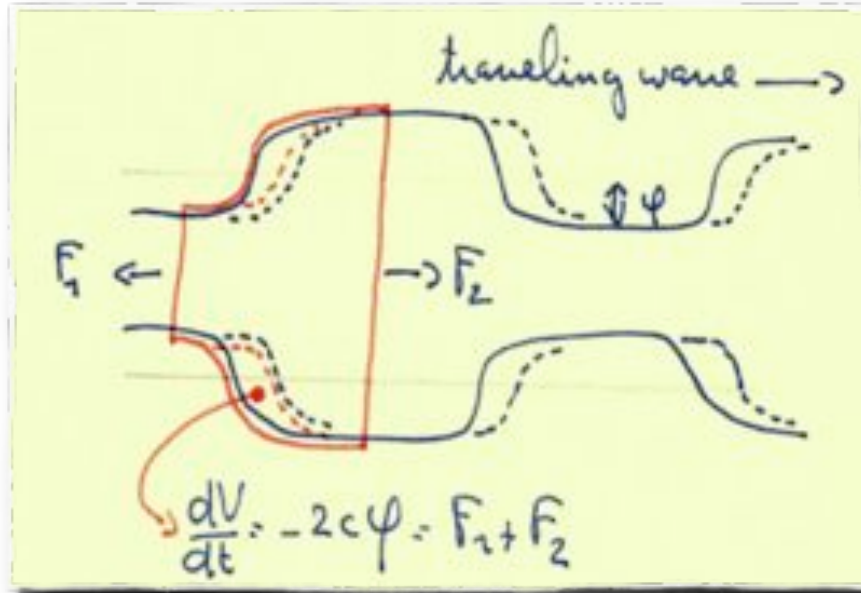 traveling wave →
φ
F₁ ← → F₂
dV/dt = -2cφ = F₁ + F₂